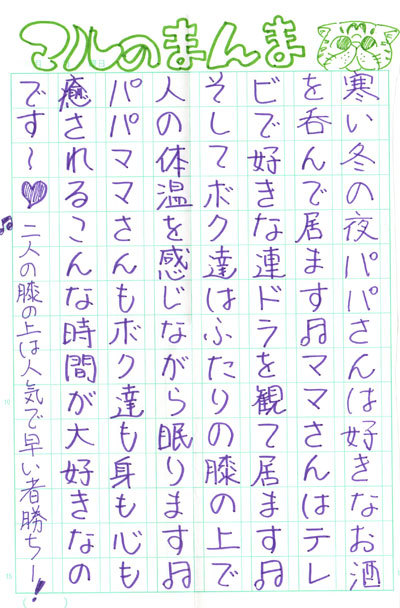 マルのまんま
寒い冬の夜パパさんは好きなお酒
を呑んで居ます♫ママさんはテレ
ビで好きな連ドラを観て居ます♫
そしてボク達はふたりの膝の上で
人の体温を感じながら眠ります♫
パパママさんもボク達も身も心も
癒されるこんな時間が大好きなの
です～♥
♫二人の膝の上は人気で早い者勝ちー!